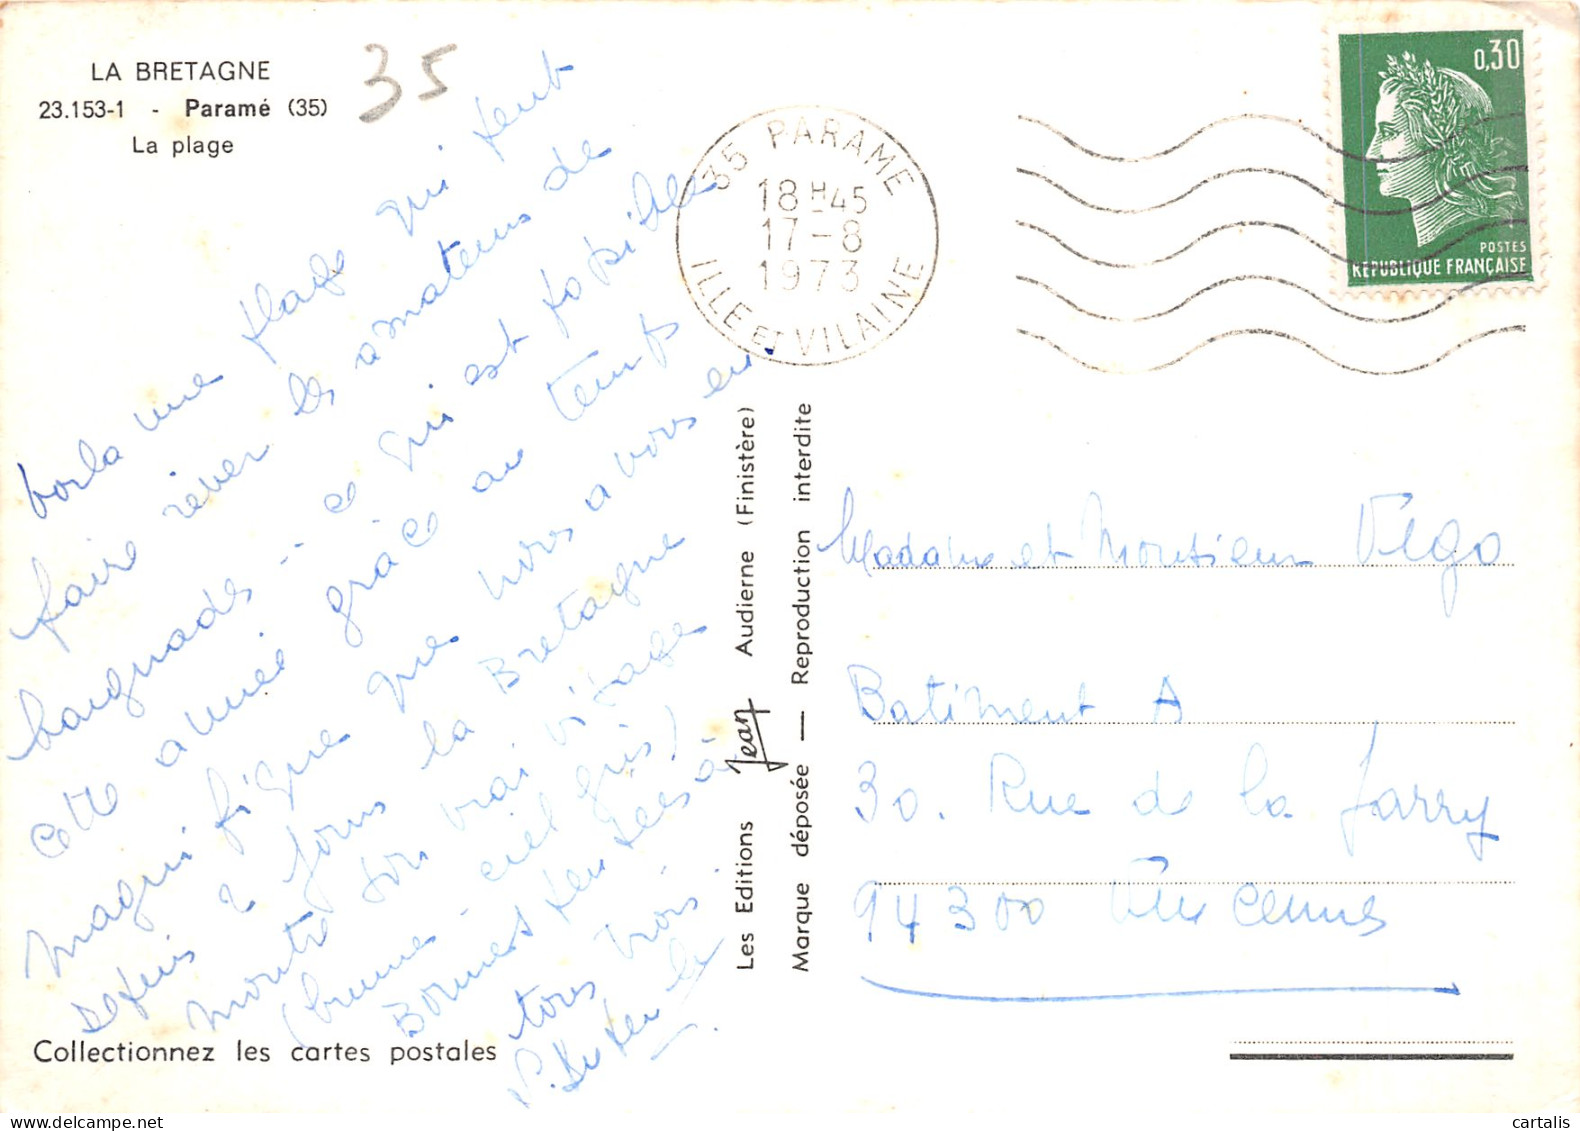 LA BRETAGNE
23.153-1 - Paramé (35)
La plage
35
Voila une plage qui peut
faire rêver les amateurs de
baignades -- ce qui est possible
cette année grâce au temps
magnifique que nous avons eu.
Depuis 2 jours la Bretagne
montre son vrai visage
(brume - ciel gris)
Bonnes pensées à
tous trois.
35 PARAME
18H45
17-8
1973
ILLE ET VILAINE
0,30
POSTES
REPUBLIQUE FRANÇAISE
Les Editions Jean Audierne (Finistère)
Marque déposée — Reproduction interdite
Madame et Monsieur Vega
Batiment A
30. Rue de la Jarry
94300 Vincennes
Collectionnez les cartes postales
cartalis